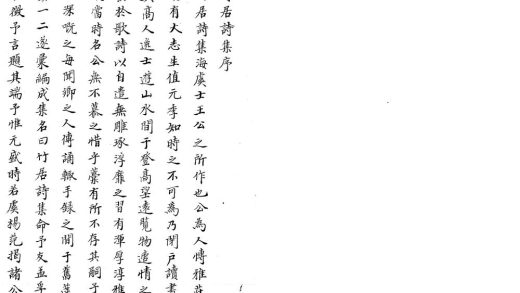 居詩集序
居詩集海虞士王公之所作也公為人博雅莊
有大志生值元季知時之不可為乃閉戶讀書
高人逸士遊山水間于登高望遠覽物遣情之
於歌詩以自遣無雕琢浮靡之習有渾厚淳雅
當時名公無不慕之惜乎藁有所不存其嗣子
深慨之每聞鄉之人傳誦輒手錄之間于舊藁
一二遂彙編成集名曰竹居詩集命予友孟孚
徵予言題其端予惟元盛時若虞楊范揭諸公